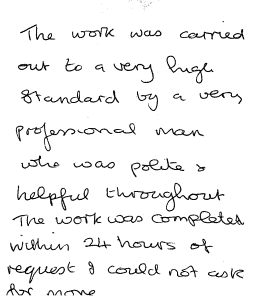 The work was carried
out to a very high
standard by a very
professional man
who was polite &
helpful throughout
The work was completed
within 24 hours of
request I could not ask
for more